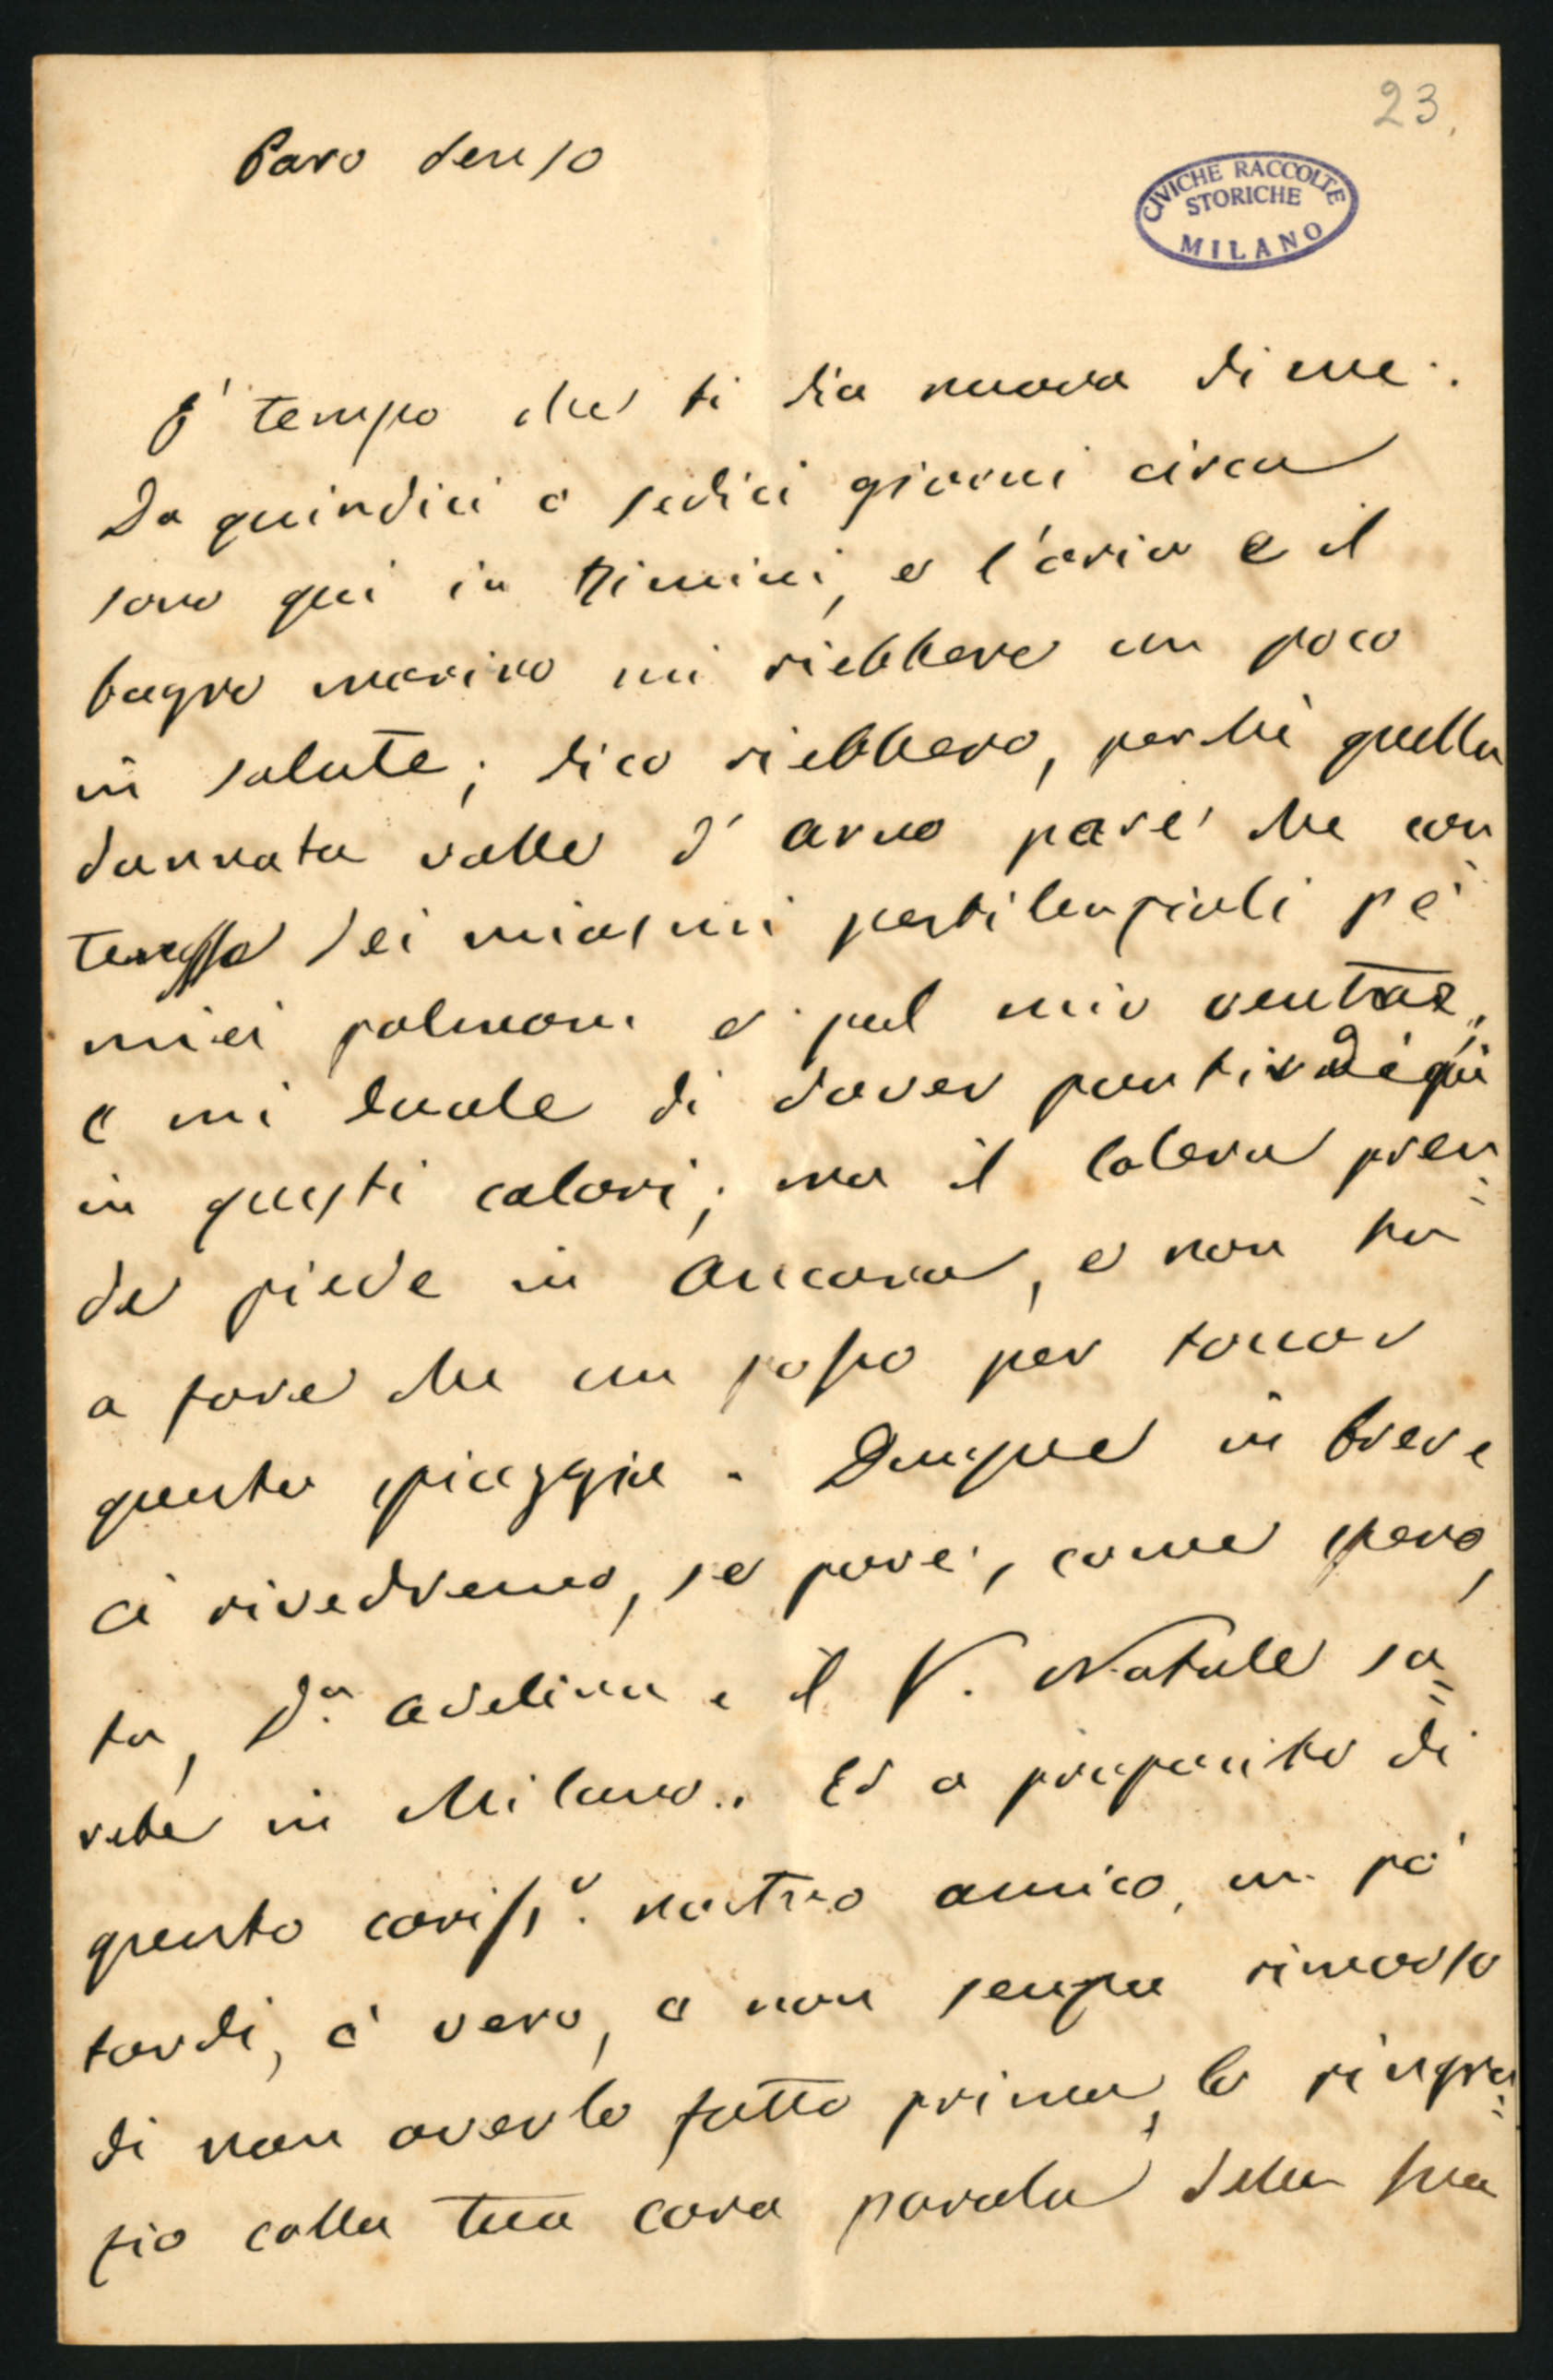 23.
CIVICHE RACCOLTE
STORICHE
MILANO
Caro Censo
E' tempo che ti dia nuova di me.
Da quindici o sedici giorni circa
sono qui in Rimini, e l'aria e il
bagno marino mi riebbere un poco
in salute; dico riebbero, perchè quella
dannata valle d'arno pare che con
tenesse dei miasmi pestilenziali pe'
miei polmoni e pel mio ventre,
e mi duole di dover partir di quì
in questi calori; ma il colera pren=
de piede in Ancona, e non ha
a fare che un passo per toccar
questa spiaggia. Dunque in breve
ci rivedremo, se pure, come spero,
tu, D.a Adelina e il V. Natale sa=
rete in Milano. Ed a proposito di
questo cariss.o nostro amico, un pò
tardi, è vero, e non senza rimorso
di non averlo fatto prima, lo ringra=
zio colla tua cara parola della sua